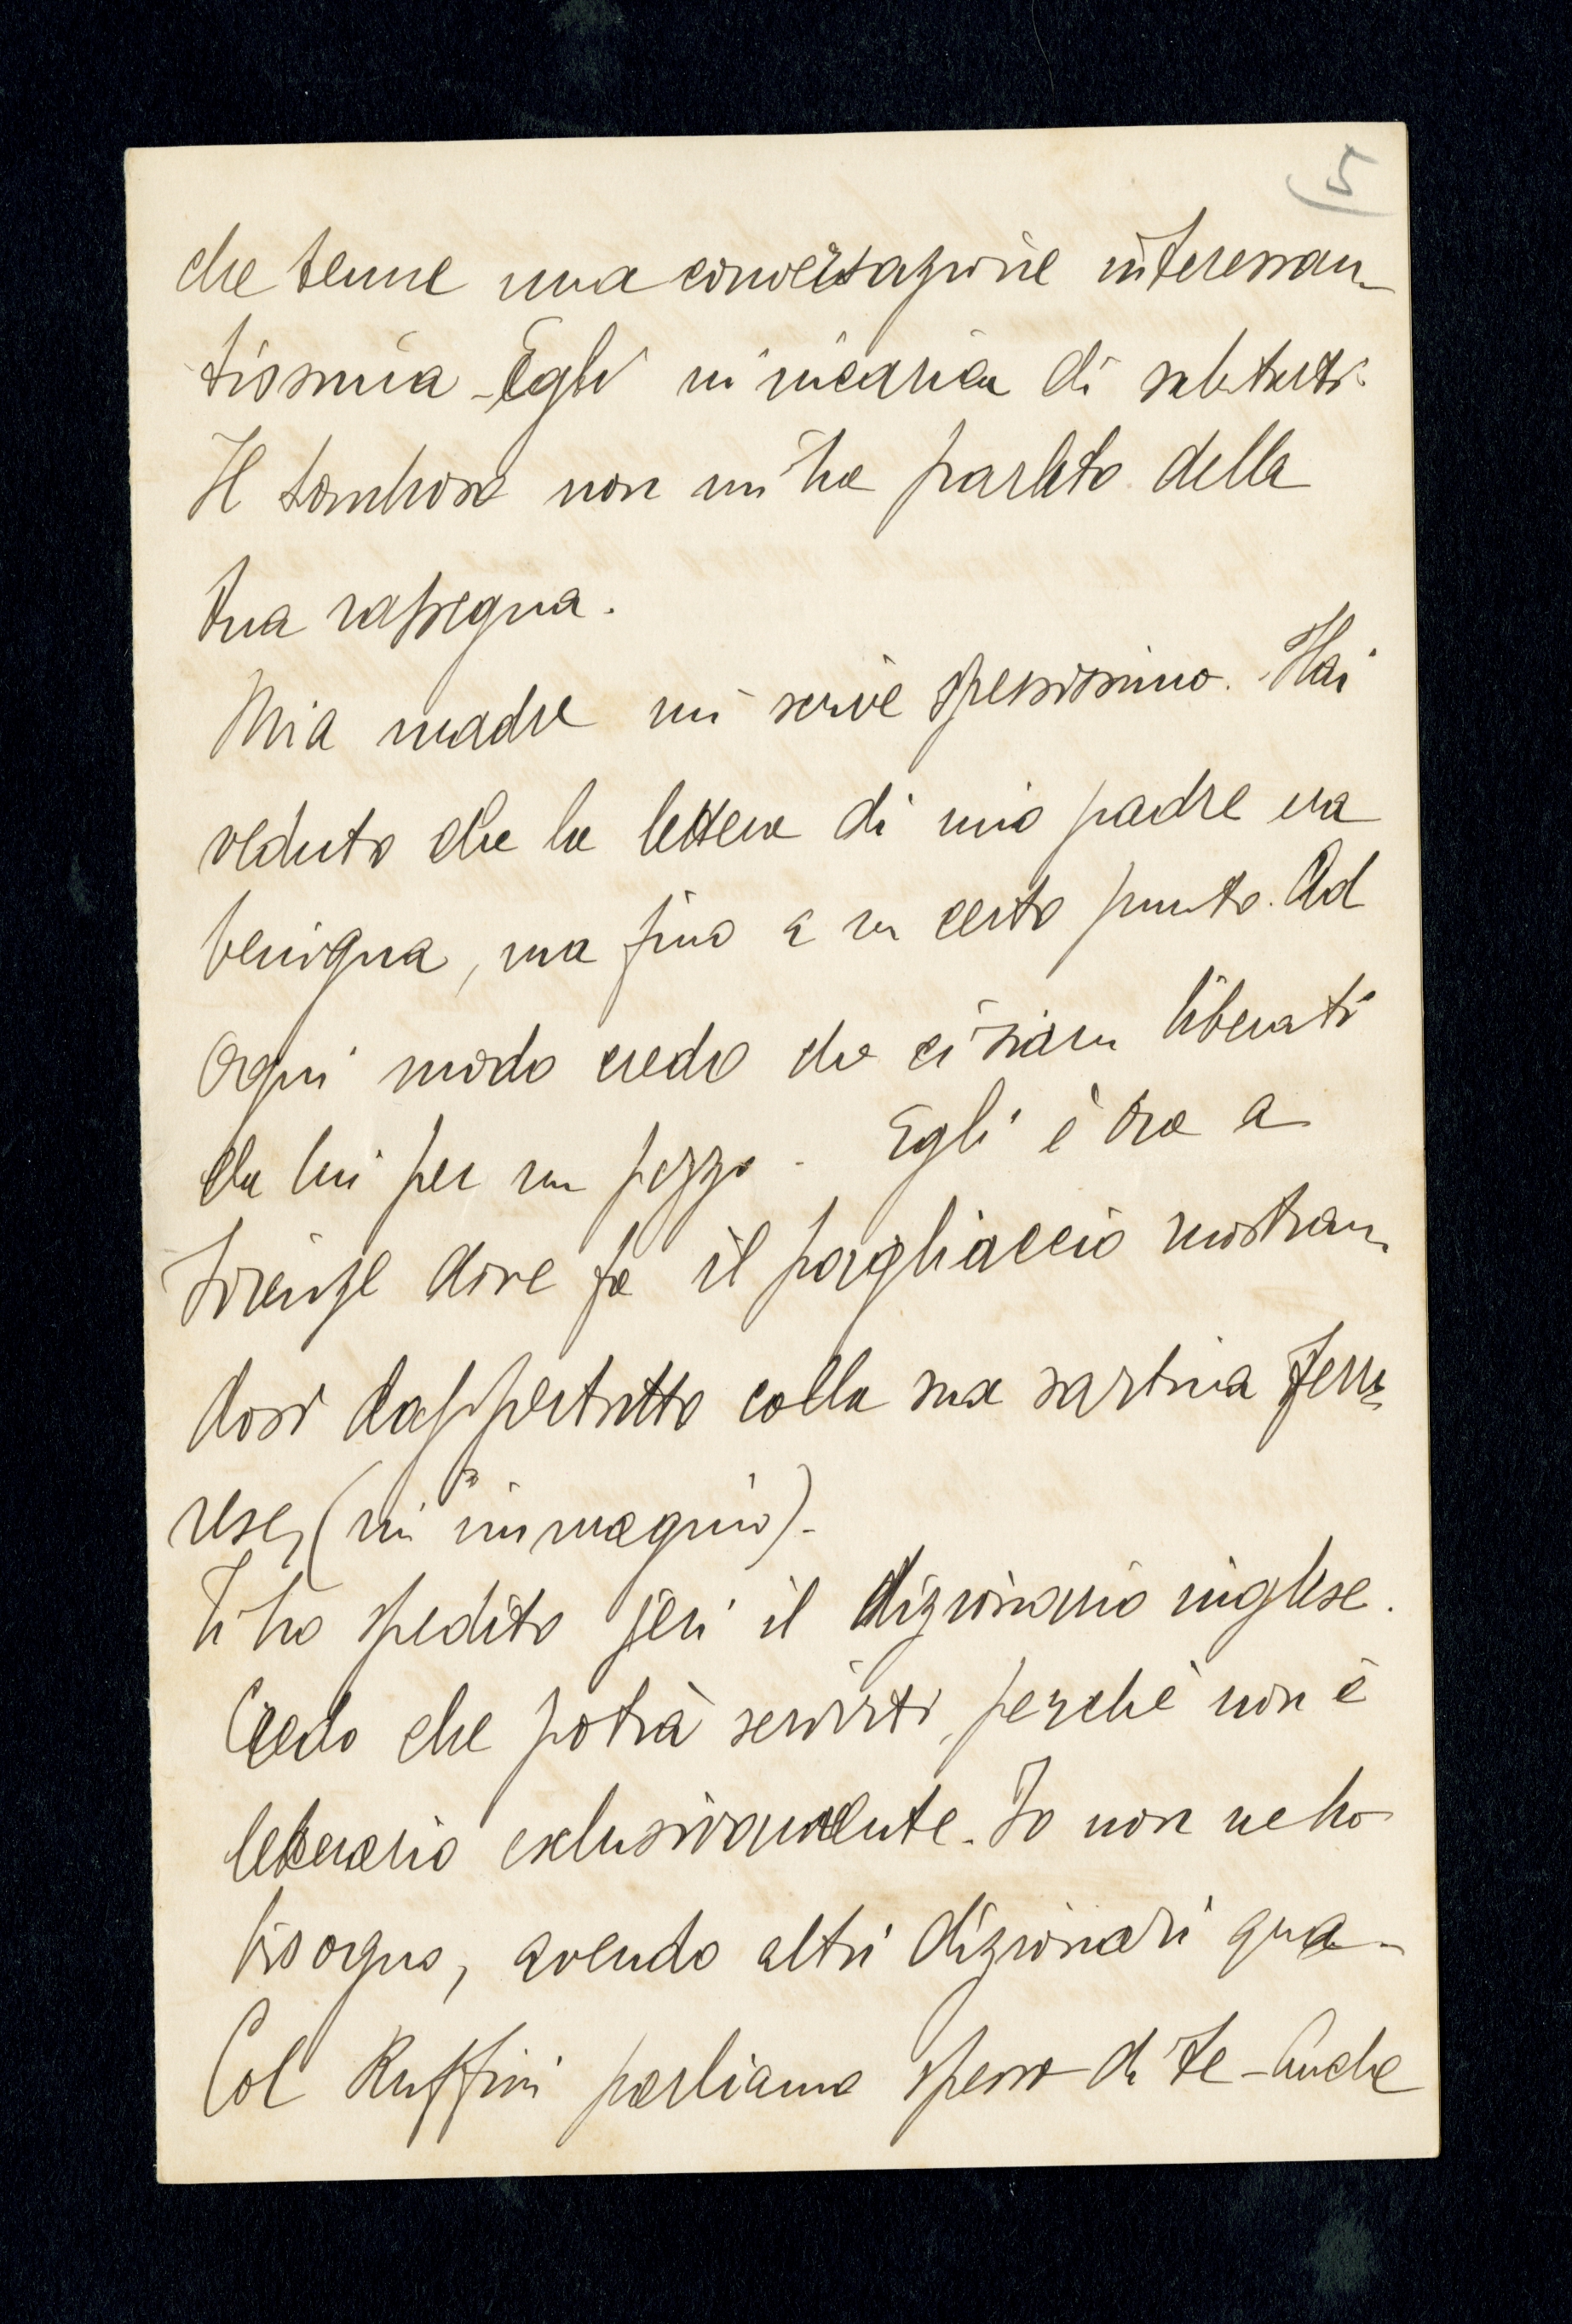 5
che tenne una conversazione interessan-
tissima - Egli m'incarica di salutarti.
Il non mi ha parlato della
tua rassegna.
Mia madre mi scrive spessissimo. Hai
veduto che la lettera di mio padre era
benigna, ma fino a un certo punto. Ad
ogni modo credo che ci siam liberati
da lui per un pezzo - Egli è ora a
Firenze dove fa il pagliaccio mostran-
dosi dappertutto colla sua sartina
(m'immagino) -
Ti ho spedito jeri il dizionario inglese.
Credo che potrà servirti, perchè non è
letterario esclusivamente. Io non ne ho
bisogno, avendo altri dizionari qua -
Col Ruffini parliamo spesso di te - Anche